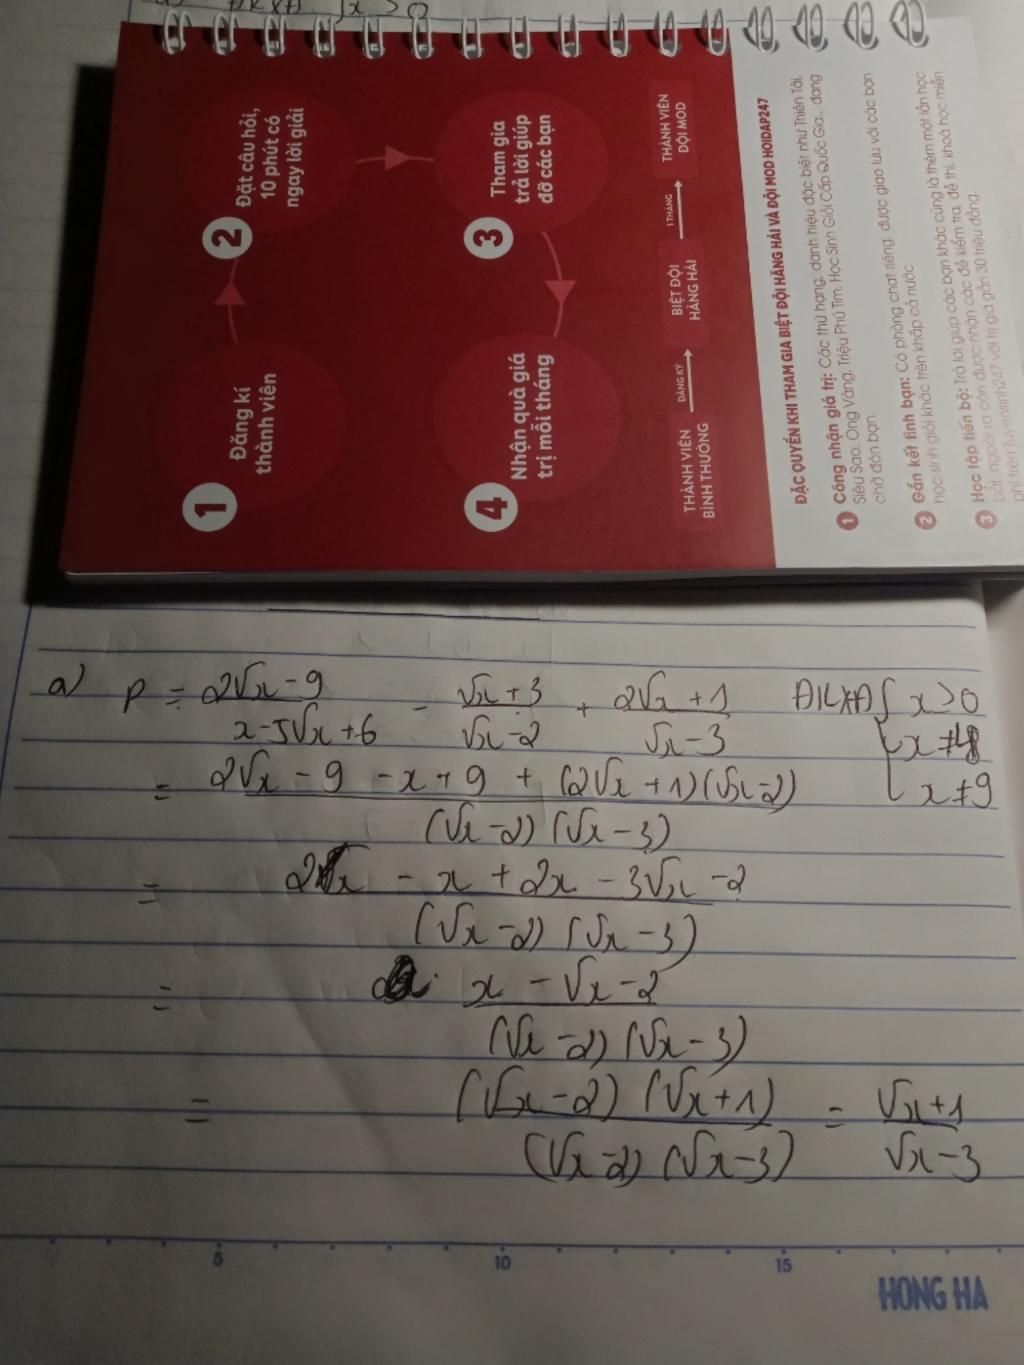 ĐKXĐ x > 0
1
Đăng kí
thành viên
2
Đặt câu hỏi,
10 phút có
ngay lời giải
3
Tham gia
trả lời giúp
đỡ các bạn
4
Nhận quà giá
trị mỗi tháng
THÀNH VIÊN
BÌNH THƯỜNG
ĐĂNG KÝ
BIỆT ĐỘI
HĂNG HÁI
1 THÁNG
THÀNH VIÊN
ĐỘI MOD
ĐẶC QUYỀN KHI THAM GIA BIỆT ĐỘI HĂNG HÁI VÀ ĐỘI MOD HOIDAP247
1 Công nhận giá trị: Các thứ hạng, danh hiệu đặc biệt như Thiên Tài,
Siêu Sao, Ong Vàng, Triệu Phú Tím, Học Sinh Giỏi Cấp Quốc Gia... đang
chờ đón bạn.
2 Gắn kết tình bạn: Có phòng chat riêng, được giao lưu với các bạn
học sinh giỏi khác trên khắp cả nước.
3 Học tập tiến bộ: Trả lời giúp các bạn khác cũng là thêm một lần học
bài, ngoài ra còn được nhận các đề kiểm tra, đề thi, khoá học miễn
phí trên Tuyensinh247 với trị giá gần 30 triệu đồng.
a) P = (2√x - 9)/(x - 5√x + 6) - (√x + 3)/(√x - 2) + (2√x + 1)/(√x - 3) ĐKXĐ { x > 0
x ≠ 4
x ≠ 9
= (2√x - 9 - x + 9 + (2√x + 1)(√x - 2))/((√x - 2)(√x - 3))
= (2√x - x + 2x - 3√x - 2)/((√x - 2)(√x - 3))
= (x - √x - 2)/((√x - 2)(√x - 3))
= ((√x - 2)(√x + 1))/((√x - 2)(√x - 3)) = (√x + 1)/(√x - 3)
5 10 15
HONG HA